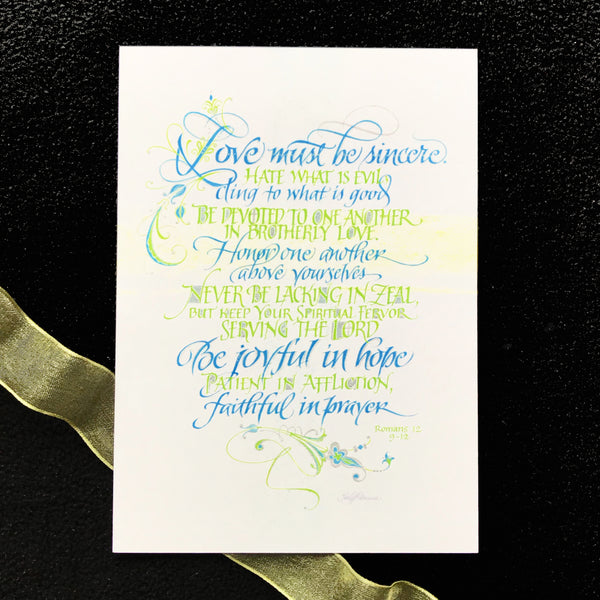 Love must be sincere.
HATE WHAT IS EVIL
cling to what is good
BE DEVOTED TO ONE ANOTHER
IN BROTHERLY LOVE.
Honor one another
above yourselves
NEVER BE LACKING IN ZEAL,
BUT KEEP YOUR SPIRITUAL FERVOR
SERVING THE LORD
Be joyful in hope
PATIENT IN AFFLICTION,
faithful in prayer
Romans 12
9-12